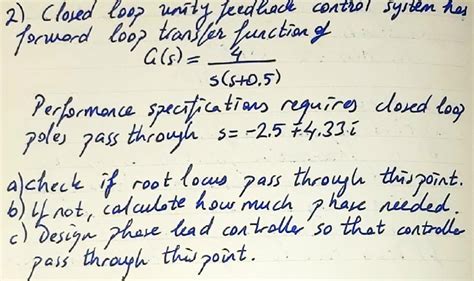 2) Closed loop unity feedback control system has
forward loop transfer function of
G(s)= 4
s(s+0.5)
Performance specifications requires closed loop
poles pass through s= -2.5 ∓4.33i
a)check if root locus pass through this point.
b) If not, calculate how much phase needed.
c) Design phase lead controller so that controller
pass through this point.